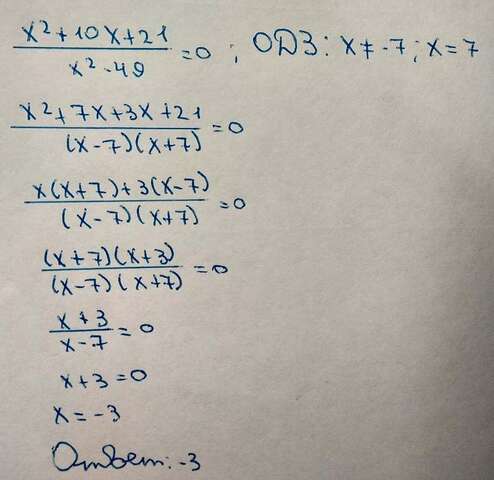 (x²+10x+21)/(x²-49)=0 ; ОДЗ: x≠-7; x=7
(x²+7x+3x+21)/((x-7)(x+7))=0
(x(x+7)+3(x-7))/((x-7)(x+7))=0
((x+7)(x+3))/((x-7)(x+7))=0
(x+3)/(x-7)=0
x+3=0
x=-3
Ответ: -3